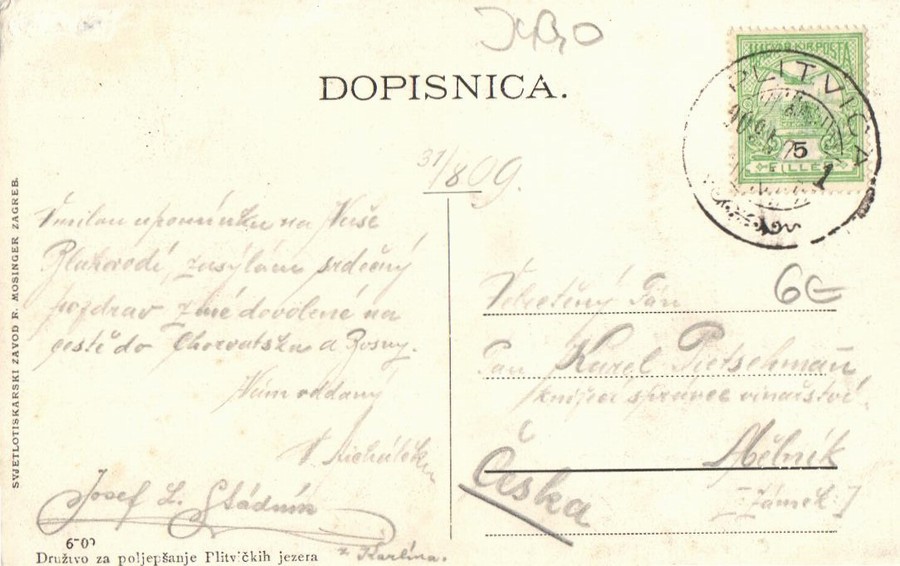 DOPISNICA.
MAGYAR KIR. POSTA
PLITVICA
5
FILLÉR
1
31/8 09.
V milou upomínku na Vaše
Blahorodí, zasýlám srdečný
pozdrav z mé dovolené na
cestě do Chorvatska a Bosny.
Vám oddaný
Josef L. Stádník
z Karlína.
6€
Velectěný Pán
Pan Karel Pietschmann
knížecí správce vinařství
Mělník
[Zámek]
Česka
SVJETLOTISKARSKI ZAVOD R. MOSINGER ZAGREB.
09
Družtvo za poljepšanje Plitvičkih jezera